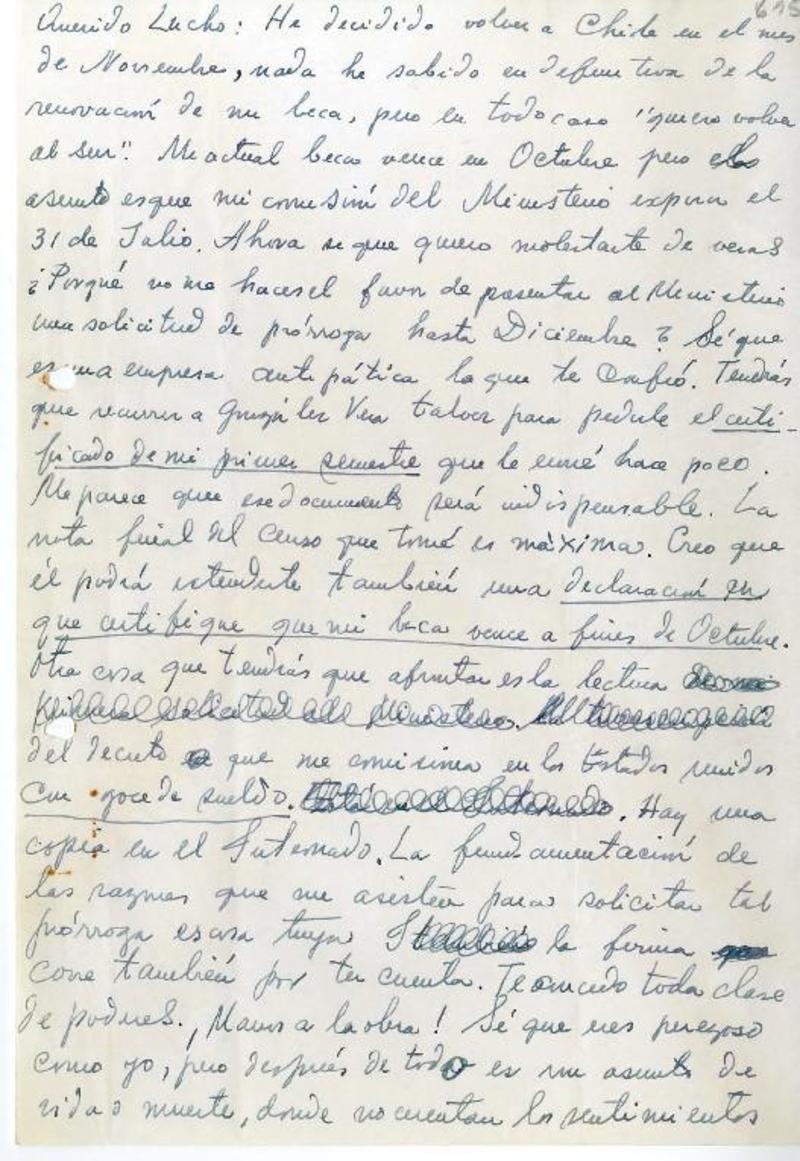 645
Querido Lucho: He decidido volver a Chile en el mes
de Noviembre, nada he sabido en definitiva de la
renovación de mi beca, pero en todo caso "quiero volver
al sur". Mi actual beca vence en Octubre pero el
asunto es que mi comisión del Ministerio expira el
31 de Julio. Ahora si que quiero molestarte de veras
¿Porqué no me haces el favor de presentar al Ministerio
una solicitud de prórroga hasta Diciembre? Sé que
es una empresa antipática la que te confió. Tendrás
que recurrir a González Vera talvez para pedirle el certi-
ficado de mi primer semestre que le envié hace poco.
Me parece que ese documento será indispensable. La
nota final del Curso que tomé es máxima. Creo que
él podrá extenderte también una declaración en
que certifique que mi beca vence a fines de Octubre.
Otra cosa que tendrás que afrontar es la lectura
del decreto que me comisiona en los Estados unidos
con goce de sueldo. Hay una
copia en el Internado. La fundamentación de
las razones que me asisten para solicitar tal
prórroga es cosa tuya la firma
corre también por tu cuenta. Te concedo toda clase
de poderes. ¡Manos a la obra! Sé que eres perezoso
como yo, pero después de todo es un asunto de
vida o muerte, donde no cuentan los sentimientos